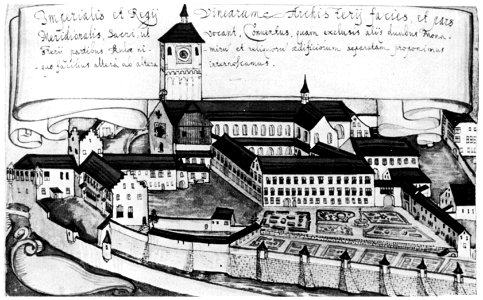 Imperialis et Regij Vinearum Archisterij facies, et pars
Meridionalis Sacri, ut vocant, Conuentus, quam exclusis alijs duabus Mona-
sterij partibus Aulæ nimirū et reliquorum ædificiorum separatam proponimus
quo facilius altera ab altera internoscamus.